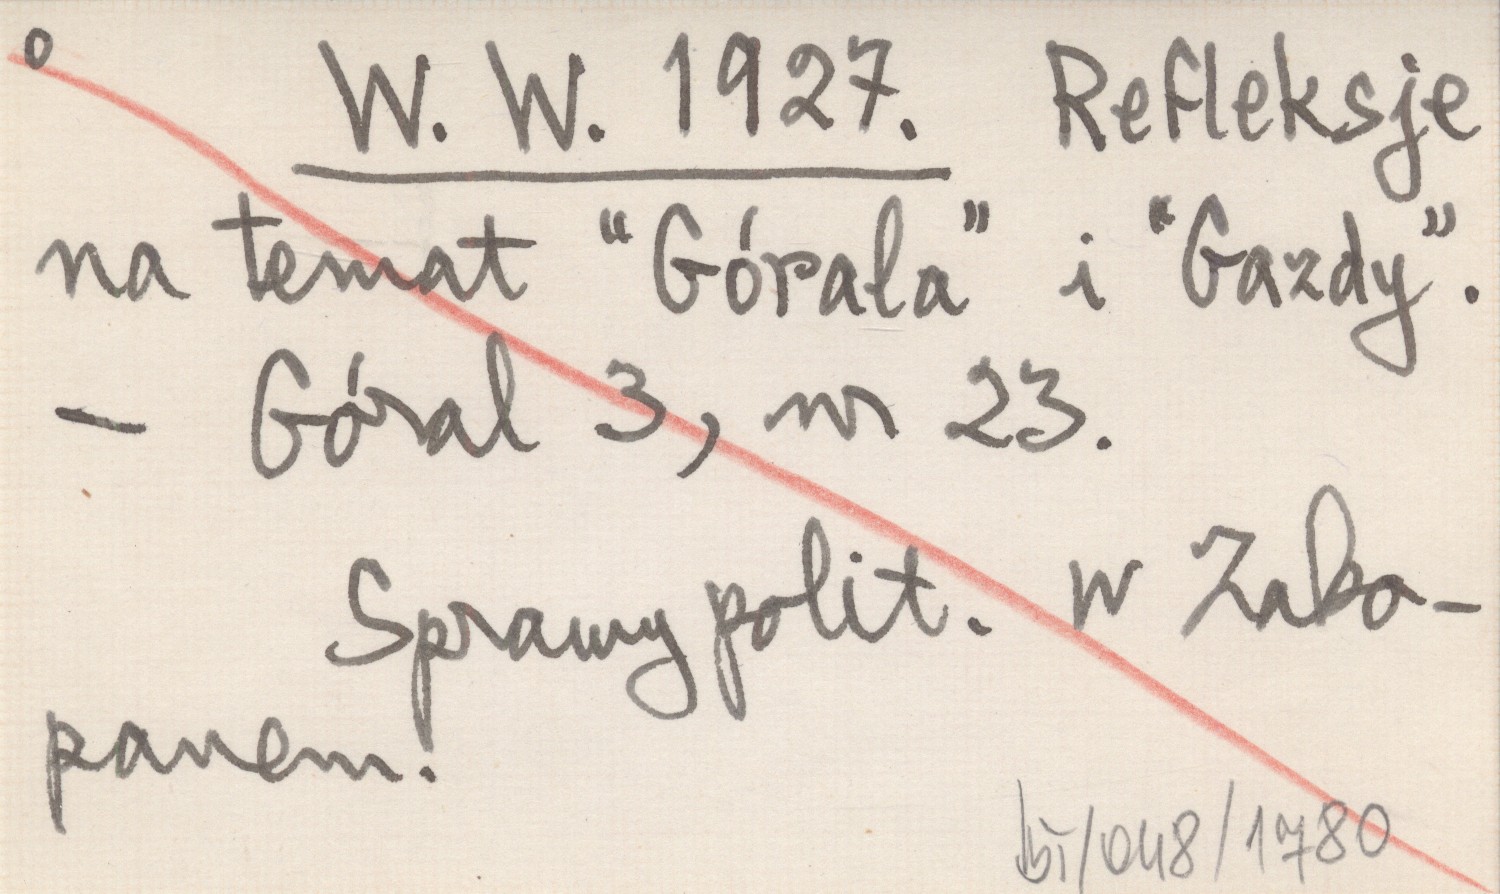 o W. W. 1927. Refleksje
na temat “Górala” i “Gazdy”.
— Góral 3, nr 23.
Sprawy polit. w Zako-
panem.
bi/048/1780